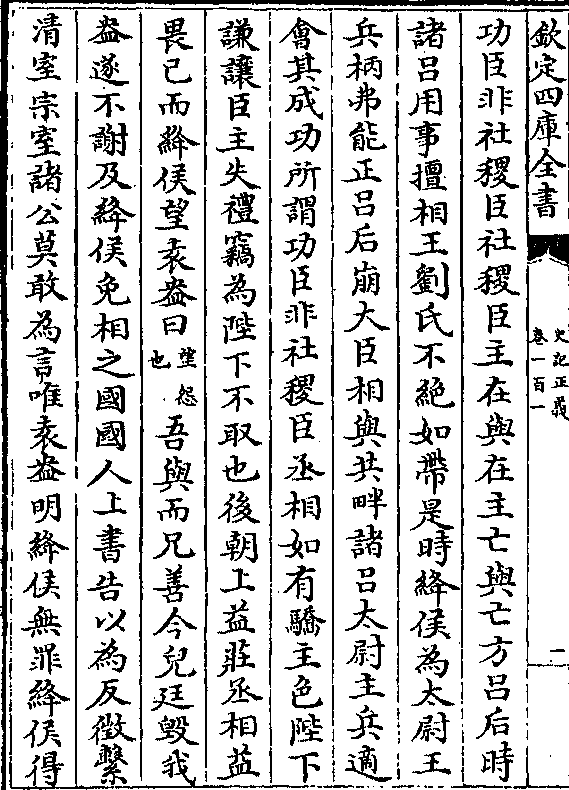 欽定四庫全書
史記正義
卷一百一
一
功臣非社稷臣社稷臣主在與在主亡與亡方吕后時
諸吕用事擅相王劉氏不絶如帶是時絳侯為太尉王
兵柄弗能正吕后崩大臣相與共畔諸吕太尉主兵適
會其成功所謂功臣非社稷臣丞相如有驕主色陛下
謙讓臣主失禮竊為陛下不取也後朝上益莊丞相益
畏已而絳侯望袁盎曰望怨也吾與而兄善今兒廷毀我
盎遂不謝及絳侯免相之國國人上書告以為反徵繫
清室宗室諸公莫敢為言唯袁盎明絳侯無罪絳侯得